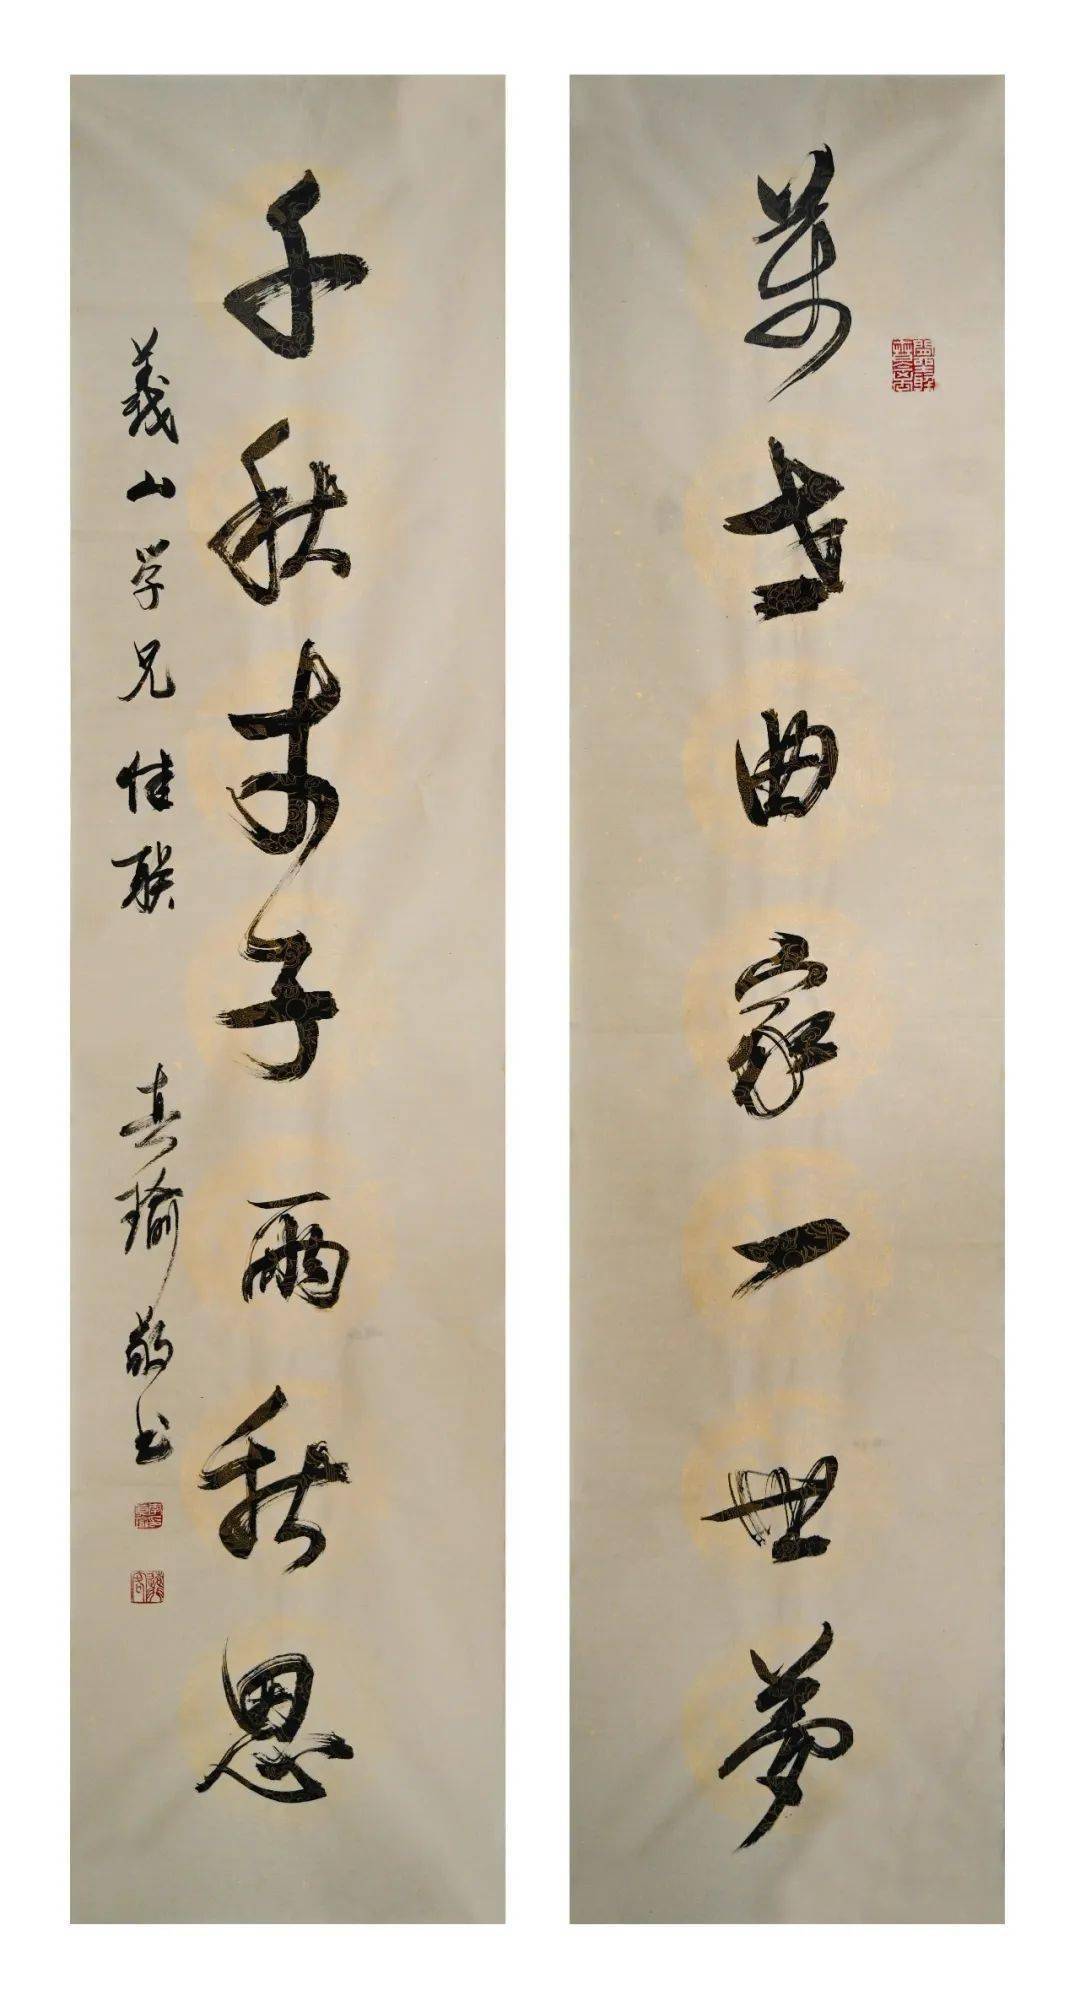 萬世曲家一世夢
千秋才子兩秋思
義山学兄佳联 真瑜敬书